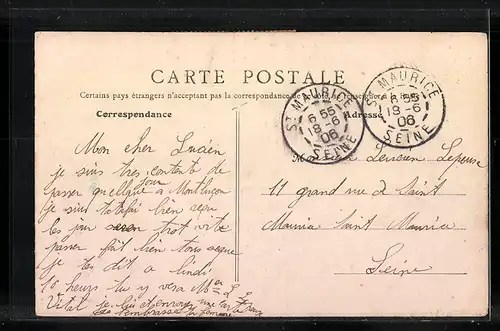 CARTE POSTALE
Certains pays étrangers n'acceptant pas la correspondance de ce
Correspondance
Adresse
ST MAURICE
6 55
18-6
06
SEINE
ST MAURICE
6 55
18-6
06
SEINE
Mon cher Lucien
je suis tres contente de
passer quelque jour a Montlucon
je suis totafai bien reçu
les jour seron trot vite
passer fait bien tous seque
je tes dit a lindi
10 heurs tu y vera
Vital je lui et envoyer une
embrasse
Lucien
11 grand rue de Saint
Mauric Saint Mauric
Seine